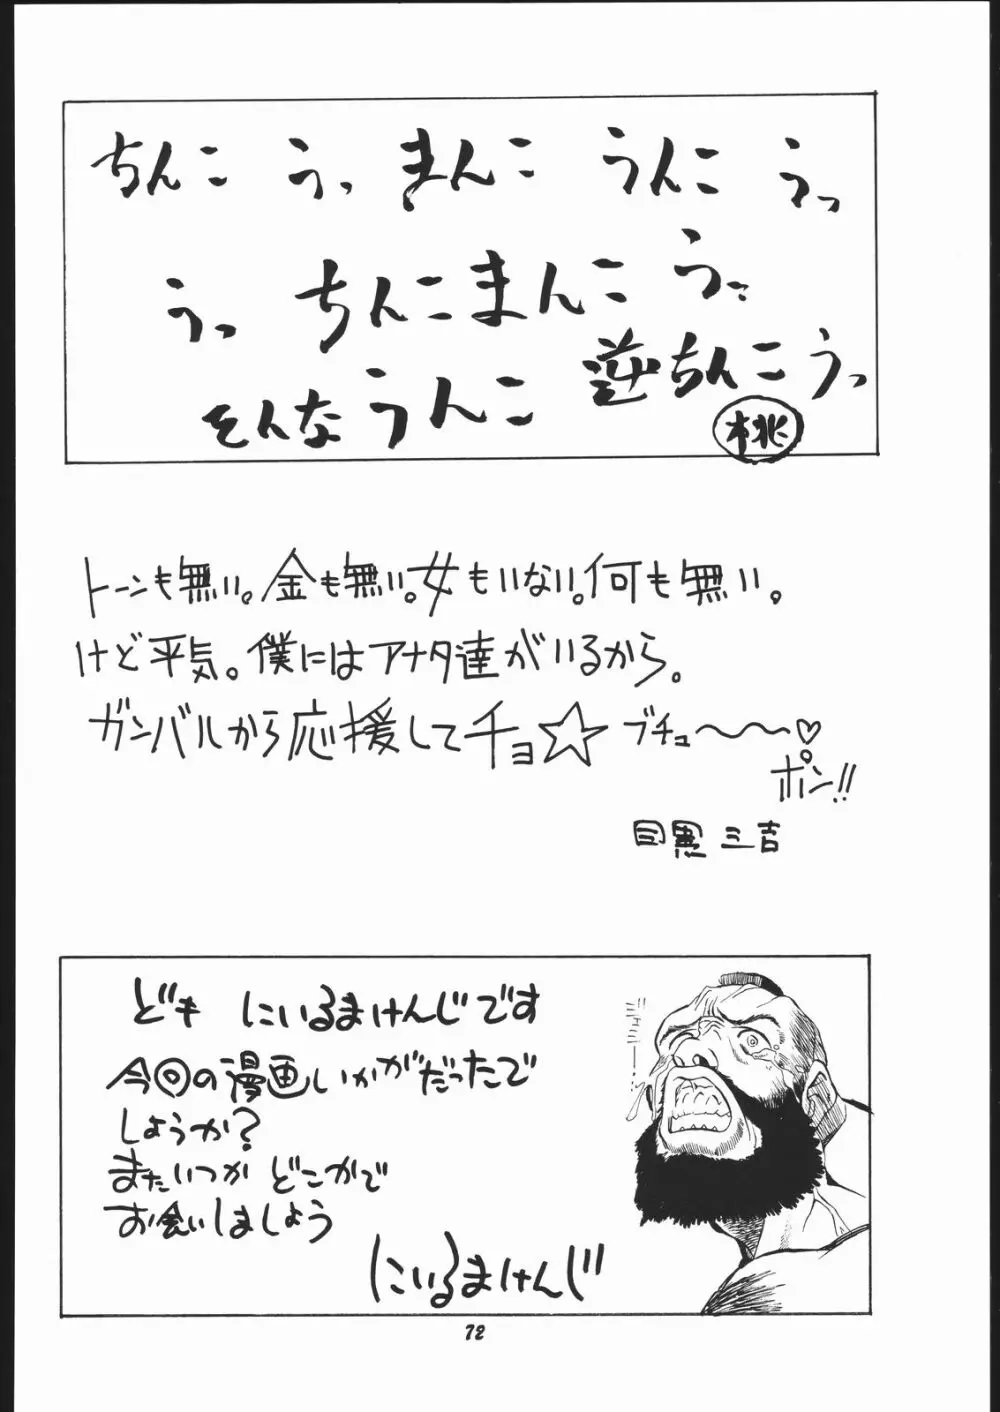 ちんこ うっ まんこ うんこ うっ
うっ ちんこまんこ うっ
そんなうんこ 逆ちんこうっ
桃
トーンも無い。金も無い。女もいない。何も無い。
けど平気。僕にはアナタ達がいるから。
ガンバルから応援してチョ☆ ブチュ〜〜〜♡
ポン!!
目悪 三吉
ども にいるまけんじです
今回の漫画いかがだったで
しょうか?
またいつか どこかで
お会いしましょう
にいるまけんじ
72